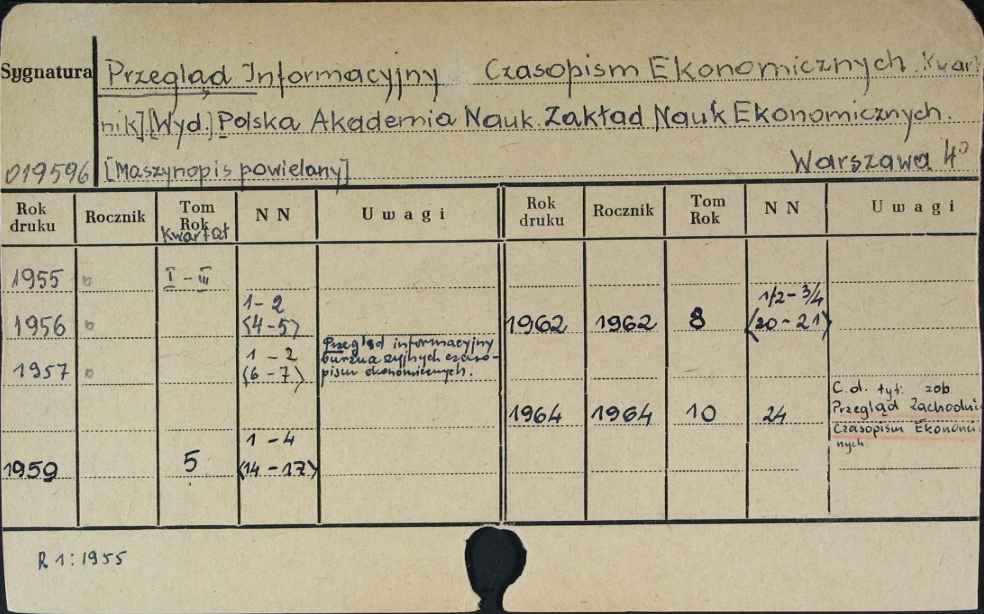 Sygnatura Przegląd Informacyjny Czasopism Ekonomicznych. Kwart
nik] [Wyd.] Polska Akademia Nauk. Zakład Nauk Ekonomicznych.
019596 [Maszynopis powielany] Warszawa 4°
Rok druku Rocznik Tom Rok Kwartał NN Uwagi Rok druku Rocznik Tom Rok NN Uwagi
1955 I - III
1956 1-2 (4-5) 1962 1962 8 1/2 - 3/4 (20-21)
1957 1 - 2 (6-7) Przegląd informacyjny burżuazyjnych czaso-
pism ekonomicznych.
1964 1964 10 24 C.d. tyt: zob.
Przegląd Zachodni
Czasopism Ekonomi
nych
1959 5 1 - 4 (14-17)
R 1: 1955